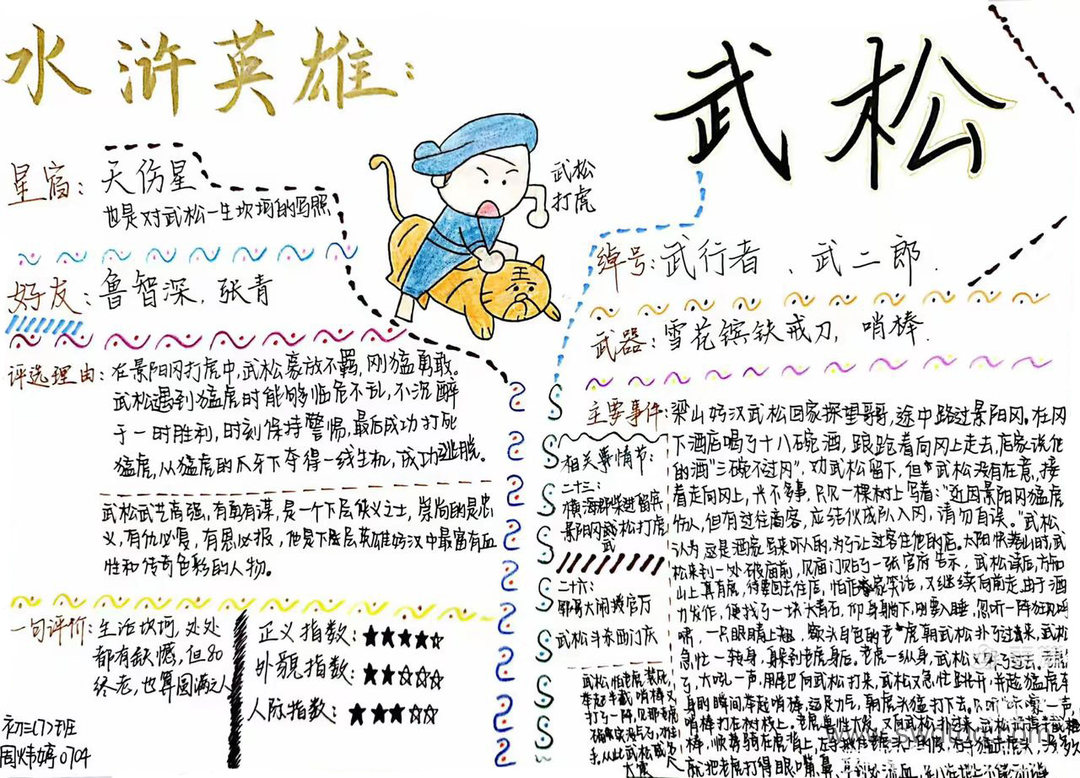 水浒英雄：
武松
星宿：天伤星
也是对武松一生坎坷的写照
好友：鲁智深，张青
武松
打虎
绰号：武行者、武二郎.
武器：雪花镔铁戒刀，哨棒.
评选理由：在景阳冈打虎中，武松豪放不羁，刚猛勇敢。
武松遇到猛虎时能够临危不乱，不沉醉
于一时胜利，时刻保持警惕，最后成功打死
猛虎，从猛虎的爪牙下夺得一线生机，成功逃脱。
武松武艺高强，有勇有谋，是一个下层侠义之士，崇尚的是忠
义，有仇必复，有恩必报，他是下层英雄好汉中最富有血
性和传奇色彩的人物。
一句评价：生活坎坷，处处
都有缺憾，但80
终老，也算圆满之人
正义指数：★★★★☆
外貌指数：★★☆☆☆
人际指数：★★★☆☆
初三(7)班
周炜婷0704
相关事情节：
二十三：
横海郡柴进留宾
景阳冈武松打虎
二十六：
郓哥大闹授官厅
武松斗杀西门庆
主要事件：梁山好汉武松回家探望哥哥，途中路过景阳冈。在冈
下酒店喝了十八碗酒，踉跄着向冈上走去，店家说他
的酒"三碗不过冈"，劝武松留下，但武松没有在意，接
着走向冈上，只见一棵树上写着："近因景阳冈猛虎
伤人，但有过往商客，应结伙成队入冈，请勿自误。"武松
认为这是酒家写来吓人的，为了让过客住他的店。太阳快落山时，武
松来到一处破庙前，见庙门贴了一张官府告示，武松读后，方知
山上真有虎，待要回去住店，怕店家笑话，又继续向前走。由于酒
力发作，便找了一块大青石，仰身躺下，刚要入睡，忽听一阵狂风呼
啸，一只眼睛上翘，额头白色的老虎朝武松扑了过来，武松
急忙一转身，躲到老虎身后。老虎一纵身，武松又
大吼一声，用尾巴向武松打来，武松又急忙跳开，并趁猛虎转
身的瞬间，举起哨棒，运足力气，朝虎头猛打下去。
哨棒打在树枝上。老虎兽性大发，又向武松扑过来，武松